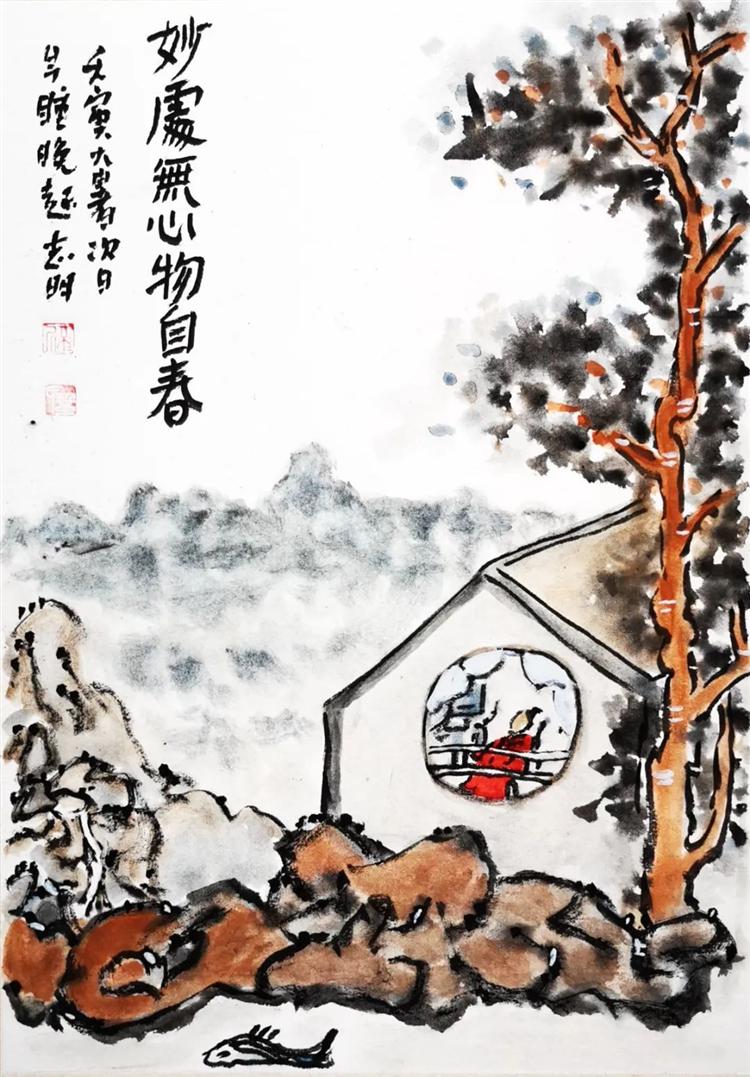 妙處無心物自春
壬寅大暑次日
早睡晚起志明